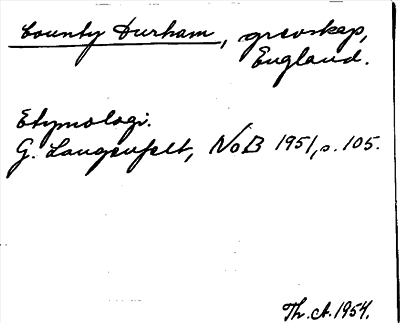 County Durham, grevskap,
England.
Etymologi.
G. Langenfelt, NoB 1951, s. 105.
Th. A. 1954.